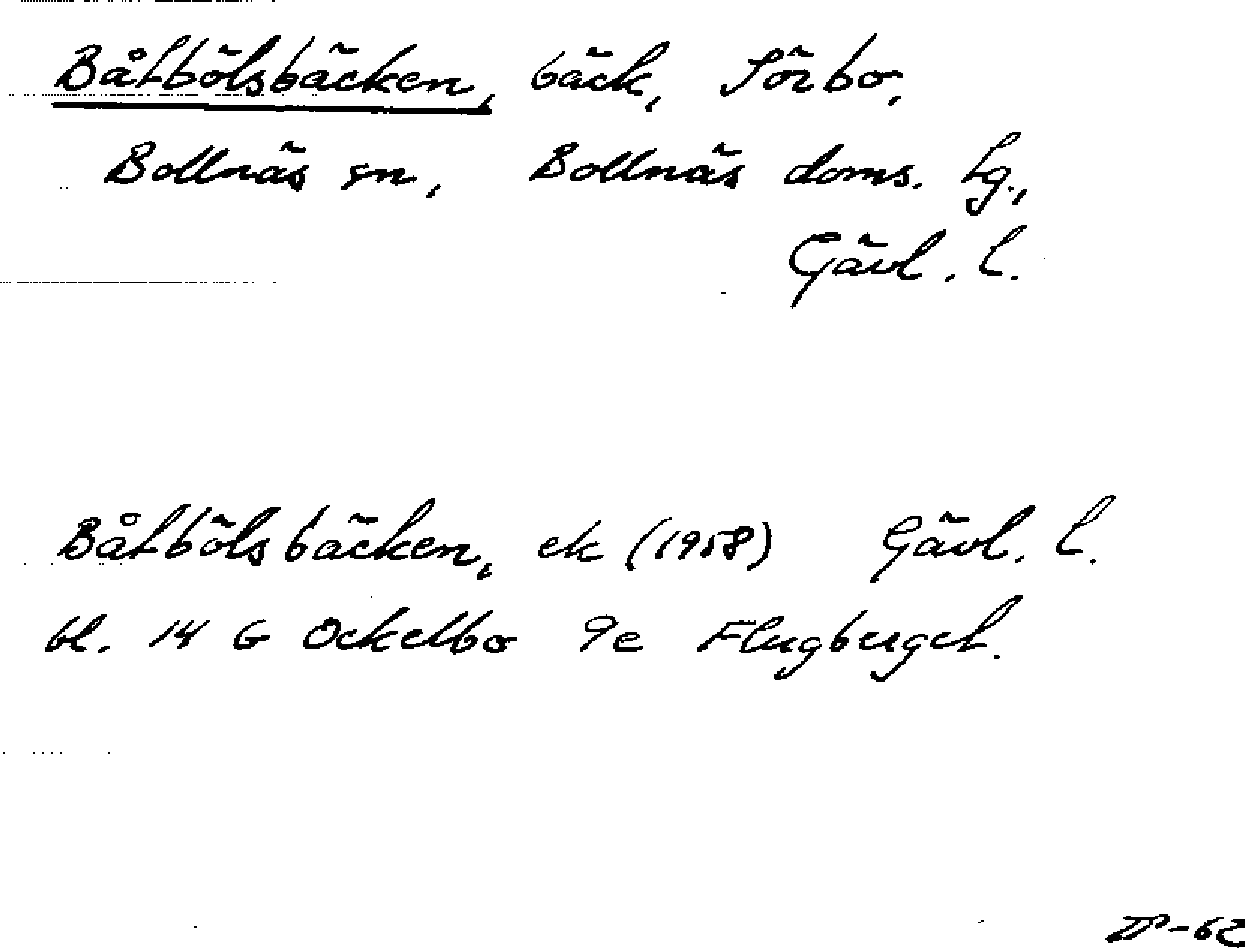 Båtbölsbäcken, bäck, Sörbo,
Bollnäs sn, Bollnäs doms. tg.,
Gävl. l.
Båtbölsbäcken, ek (1958) Gävl. l.
bl. 14 G Ockelbo 9e Flugberget.